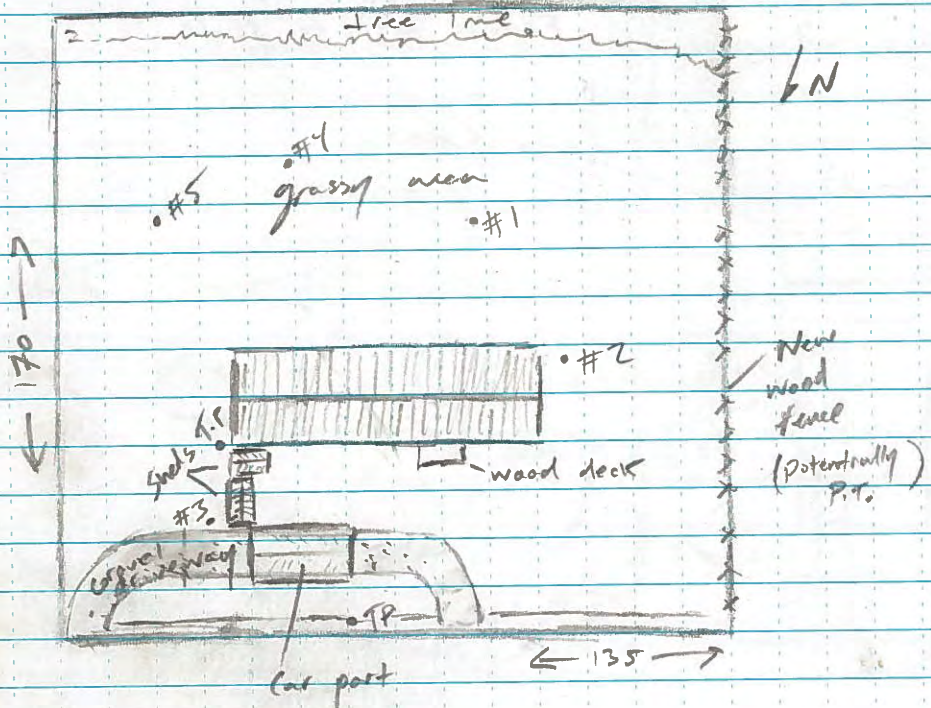 tree line
N
#4
#5
grassy area
#1
170
#2
New
wood
fence
(potentially
P.T.)
T.P
sheds
wood deck
#3
coqual
driveway
TP
135
car port